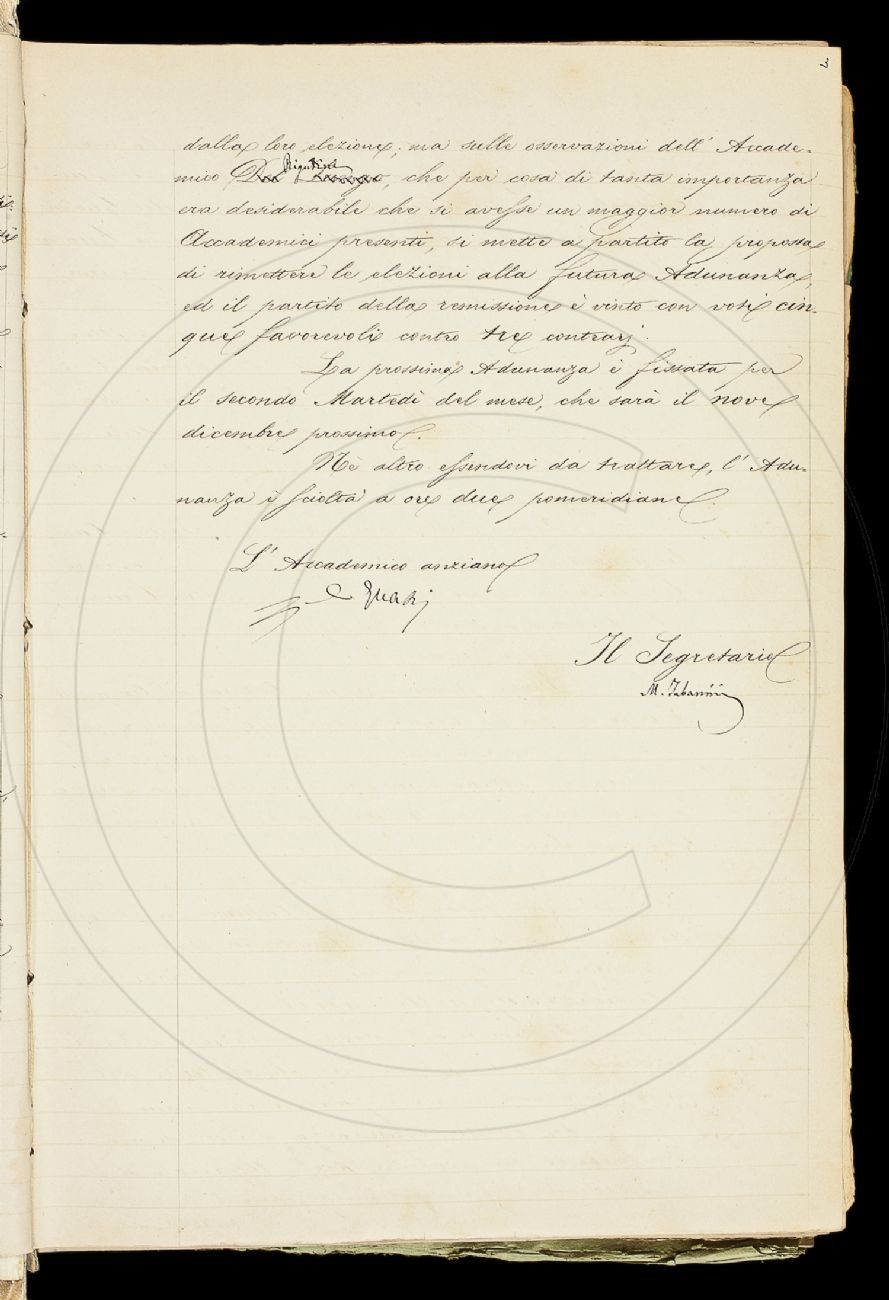 3
dalla loro elezione; ma sulle osservazioni dell' Accade-
Rigutini
mico Del Lungo, che per cosa di tanta importanza
era desiderabile che si avesse un maggior numero di
Accademici presenti, si mette a partito la proposta
di rimettere le elezioni alla futura Adunanza,
ed il partito della remissione è vinto con voti cin-
que favorevoli contro tre contrarj.
La prossima Adunanza è fissata per
il secondo Martedì del mese, che sarà il nove
dicembre prossimo.
Nè altro essendovi da trattare, l' Adu-
nanza è sciolta a ore due pomeridiane.
L' Accademico anziano
Il Segretario
M. Tabarrini